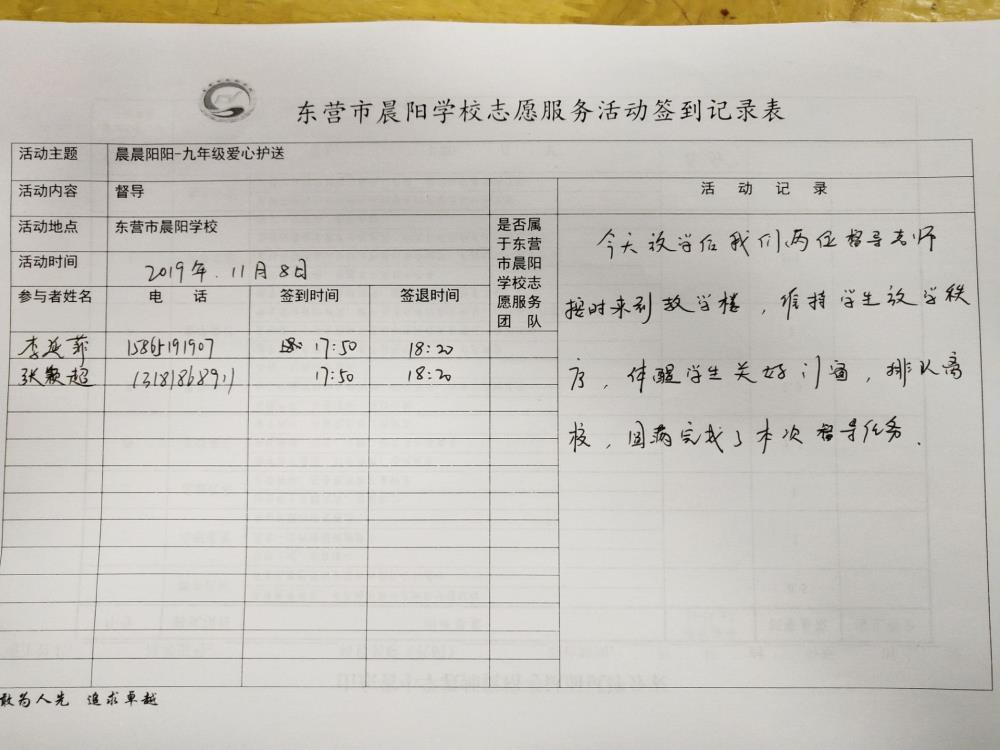 东营市晨阳学校志愿服务活动签到记录表
活动主题 晨晨阳阳-九年级爱心护送
活动内容 督导
活动地点 东营市晨阳学校
活动时间 2019年.11月8日
参与者姓名 电 话 签到时间 签退时间
李延菲 15865191907 17:50 18:20
张颖超 13181868911 17:50 18:20
是否属
于东营
市晨阳
学校志
愿服务
团 队
活 动 记 录
今天放学后我们两位督导老师
按时来到教学楼，维持学生放学秩
序，体醒学生关好门窗，排队离
校，圆满完成了本次督导任务.
敢为人先 追求卓越